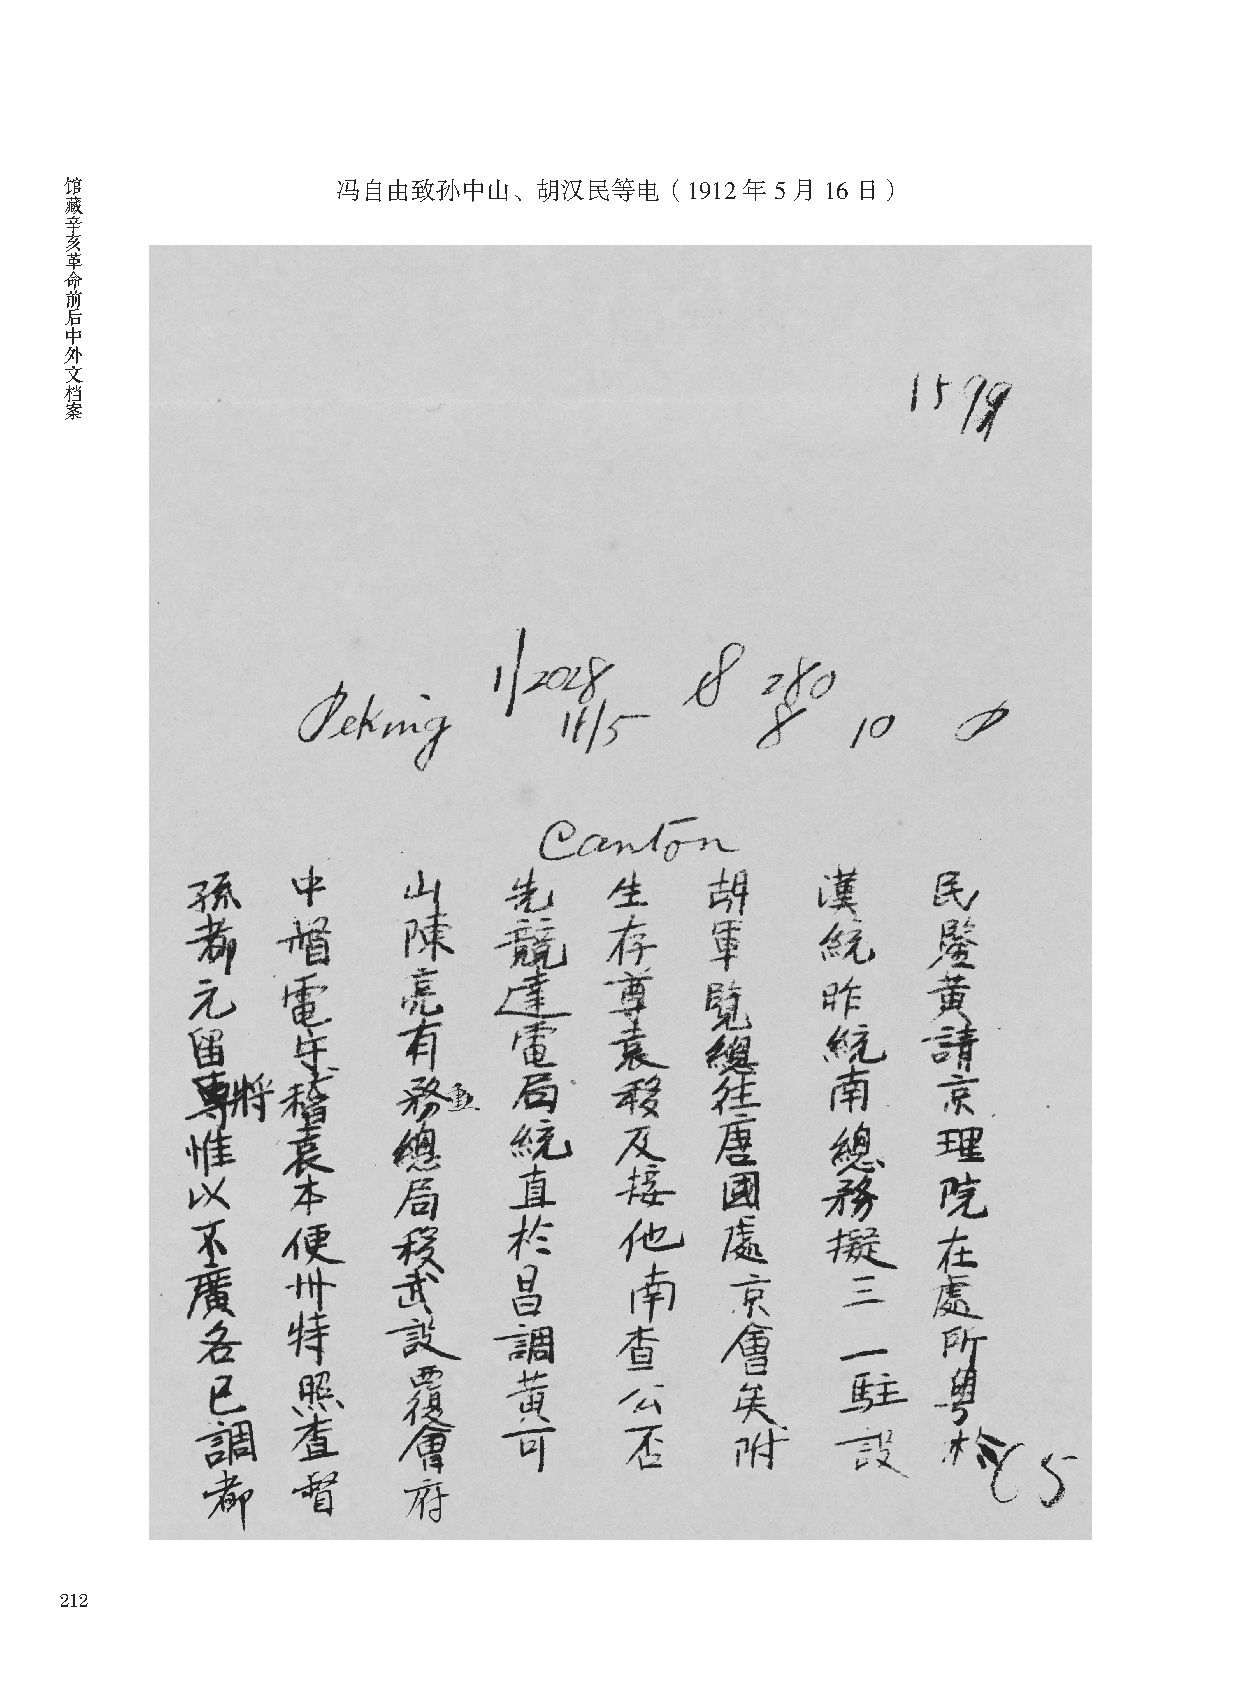 馆藏辛亥革命前后中外文档案
冯自由致孙中山、胡汉民等电（1912年5月16日）
1/2028 8 280
Peking 16/5 8 10
Canton
孫中山先生胡漢民
都督陳競存軍統鑒
元電亮達尊覽昨黃
留守有電袁總統請
將稽務局移往南京
惟袁總統及唐總理
以本局直接國務院
不便移於他處擬在
廣州武昌南京三處
各特設調查會一所
已照覆黃公矣駐粵
調查會可否附設於
都督府
212